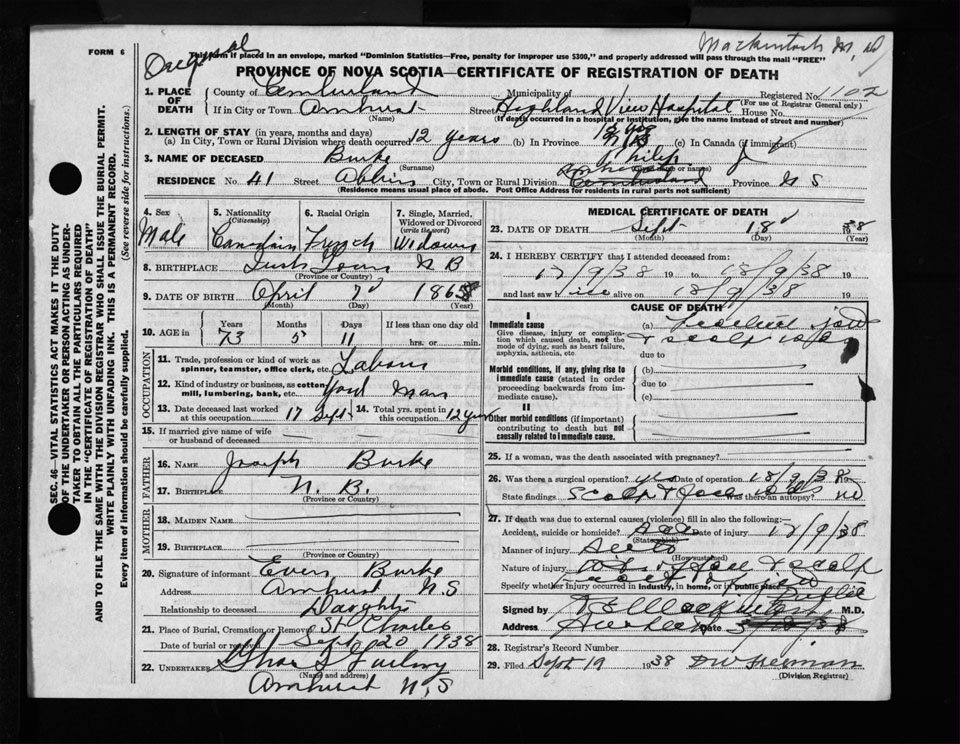 FORM 6
This form if placed in an envelope, marked "Dominion Statistics—Free, penalty for improper use $300," and properly addressed will pass through the mail "FREE"
Mackintosh M.D.
PROVINCE OF NOVA SCOTIA—CERTIFICATE OF REGISTRATION OF DEATH
1. PLACE OF DEATH County of Cumberland Municipality of Registered No. 1102
(For use of Registrar General only)
If in City or Town Amherst Street Highland View Hospital House No.
(Name) (If death occurred in a hospital or institution, give the name instead of street and number)
2. LENGTH OF STAY (in years, months and days)
(a) In City, Town or Rural Division where death occurred 12 years (b) In Province (c) In Canada (if immigrant)
3. NAME OF DECEASED Burke Philip J
(Surname) (Given name or names)
RESIDENCE No. 41 Street City, Town or Rural Division Amherst Province N S
(Residence means usual place of abode. Post Office Address for residents in rural parts not sufficient)
4. Sex Male
5. Nationality (Citizenship) Canadian
6. Racial Origin French
7. Single, Married, Widowed or Divorced (write the word) Widower
8. BIRTHPLACE N B
(Province or Country)
9. DATE OF BIRTH April 7 1865
(Month) (Day) (Year)
10. AGE in Years Months Days If less than one day old
73 5 11 hrs. or min.
OCCUPATION
11. Trade, profession or kind of work as spinner, teamster, office clerk, etc. Labour
12. Kind of industry or business, as cotton mill, lumbering, bank, etc. Yard Man
13. Date deceased last worked at this occupation 17 Sept
14. Total yrs. spent in this occupation 12 years
15. If married give name of wife or husband of deceased
FATHER
16. NAME Joseph Burke
17. BIRTHPLACE N. B.
(Province or Country)
MOTHER
18. MAIDEN NAME
19. BIRTHPLACE
(Province or Country)
20. Signature of informant Burke
Address Amherst N.S
Relationship to deceased Daughter
21. Place of Burial, Cremation or Removal St Charles
Date of burial or removal Sept 20 1938
22. UNDERTAKER
(Name and address)
Amherst N.S
MEDICAL CERTIFICATE OF DEATH
23. DATE OF DEATH Sept 18 38
(Month) (Day) (Year)
24. I HEREBY CERTIFY that I attended deceased from:
17/9/38 19 to 18/9/38 19
and last saw h alive on 18/9/38 19
CAUSE OF DEATH
I
Immediate cause (a) Fractured jaw
Give disease, injury or complication which caused death, not the mode of dying, such as heart failure, asphyxia, asthenia, etc
& scalp
due to
Morbid conditions, if any, giving rise to immediate cause (stated in order proceeding backwards from immediate cause).
(b)
due to
(c)
II
Other morbid conditions (if important) contributing to death but not causally related to immediate cause.
25. If a woman, was the death associated with pregnancy?
26. Was there a surgical operation? yes Date of operation 18/9/38 19
State findings Scalp & face Was there an autopsy? no
27. If death was due to external causes (violence) fill in also the following:—
Accident, suicide or homicide? Date of injury 17/9/38
(State which)
Manner of injury
(How sustained)
Nature of injury face & scalp
Specify whether injury occurred in industry, in home, or in public place
Public
Signed by M.D.
Address Amherst Date
28. Registrar's Record Number
29. Filed Sept 19 1938
(Division Registrar)
SEC. 46—VITAL STATISTICS ACT MAKES IT THE DUTY OF THE UNDERTAKER OR PERSON ACTING AS UNDERTAKER TO OBTAIN ALL THE PARTICULARS REQUIRED IN THE "CERTIFICATE OF REGISTRATION OF DEATH" AND TO FILE THE SAME WITH THE DIVISION REGISTRAR WHO SHALL ISSUE THE BURIAL PERMIT.
WRITE PLAINLY WITH UNFADING INK. THIS IS A PERMANENT RECORD.
Every item of information should be carefully supplied. (See reverse side for instructions.)